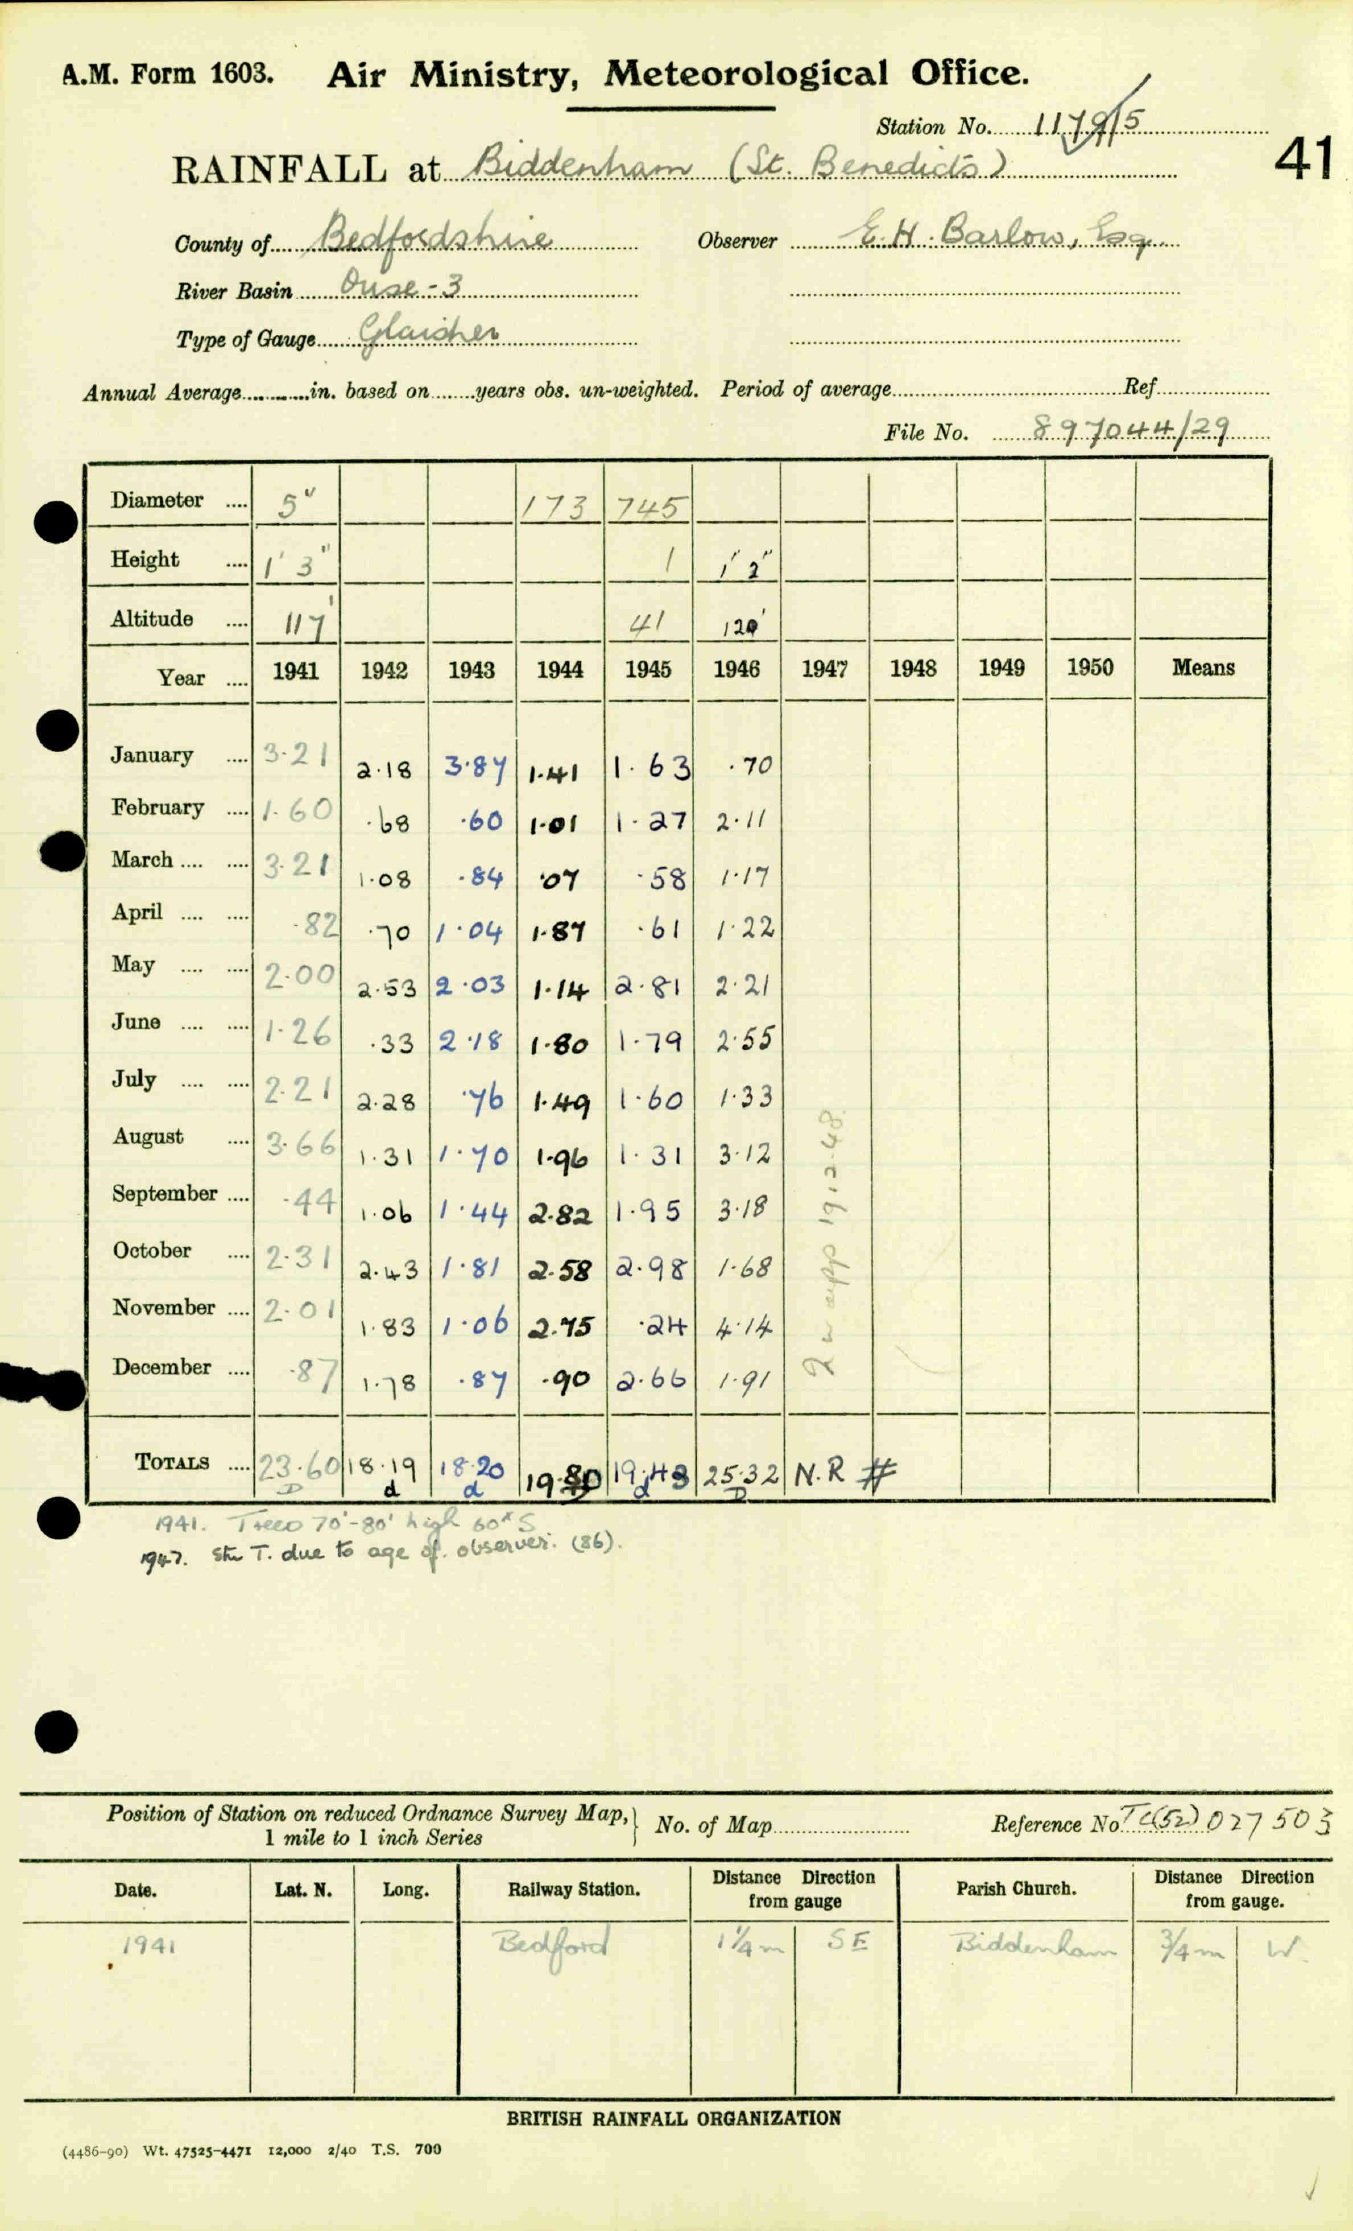 A.M. Form 1603. Air Ministry, Meteorological Office.
Station No. 1179/5
41
RAINFALL at Biddenham (St. Benedicts)
County of Bedfordshire Observer E.H. Barlow, Esq.
River Basin Ouse-3
Type of Gauge Glaisher
Annual Average in. based on years obs. un-weighted. Period of average Ref
File No. 897044/29
Diameter 5" 173 745
Height 1' 3" 1 1' 2"
Altitude 117' 41 120'
Year 1941 1942 1943 1944 1945 1946 1947 1948 1949 1950 Means
January 3.21 2.18 3.87 1.41 1.63 .70
February 1.60 .68 .60 1.01 1.27 2.11
March 3.21 1.08 .84 .07 .58 1.17
April .82 .70 1.04 1.87 .61 1.22
May 2.00 2.53 2.03 1.14 2.81 2.21
June 1.26 .33 2.18 1.80 1.79 2.55
July 2.21 2.28 .76 1.49 1.60 1.33
August 3.66 1.31 1.70 1.96 1.31 3.12
September .44 1.06 1.44 2.82 1.95 3.18
October 2.31 2.43 1.81 2.58 2.98 1.68
November 2.01 1.83 1.06 2.75 .24 4.14
December .87 1.78 .87 .90 2.66 1.91
19.2.48
TOTALS 23.60 18.19 18.20 19.80 19.43 25.32 N.R #
D d d D d D
1941. Trees 70'-80' high 60x S
1947. Stn T. due to age of observer. (86).
Position of Station on reduced Ordnance Survey Map, No. of Map Reference No TL(52) 027503
1 mile to 1 inch Series
Date. Lat. N. Long. Railway Station. Distance from gauge Direction Parish Church. Distance Direction from gauge.
1941 Bedford 1 1/4 m SE Biddenham 3/4 m W
BRITISH RAINFALL ORGANIZATION
(4486-90) Wt. 47525-4471 12,000 2/40 T.S. 700